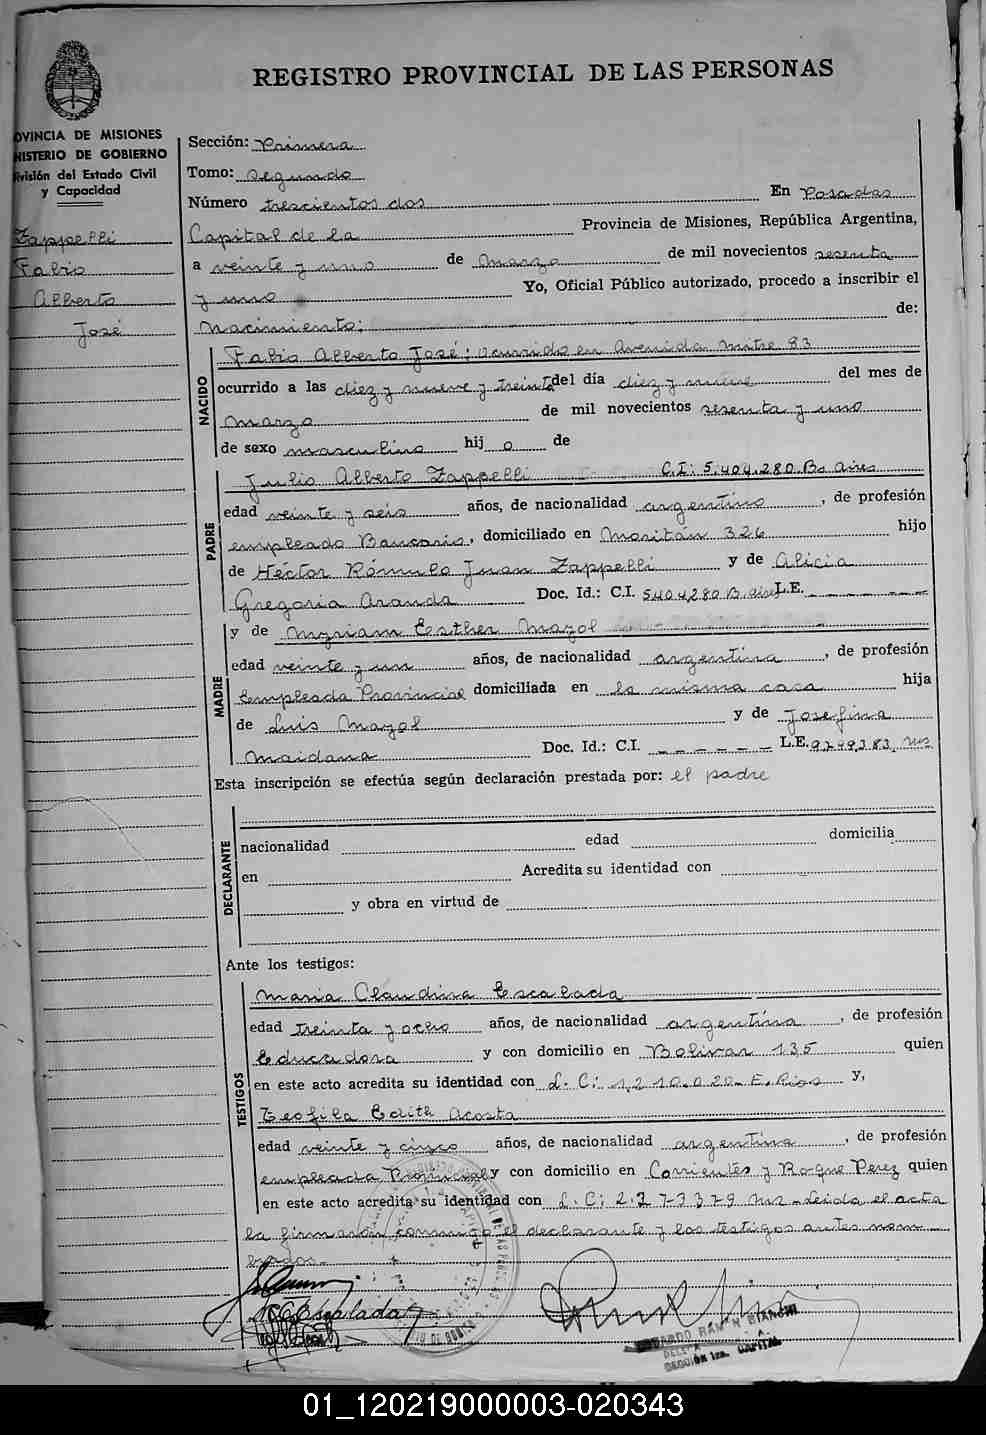 REGISTRO PROVINCIAL DE LAS PERSONAS
OVINCIA DE MISIONES
NISTERIO DE GOBIERNO
visión del Estado Civil
y Capacidad
Zappelli
Fabio
Alberto
José
Sección: Primera
Tomo: Segundo
Número trescientos dos En Posadas
Capital de la Provincia de Misiones, República Argentina,
a veinte y uno de Marzo de mil novecientos sesenta
y uno Yo, Oficial Público autorizado, procedo a inscribir el
Nacimiento: de:
NACIDO
Fabio Alberto José; ocurrido en Avenida Mitre 83
ocurrido a las diez y nueve y treinta del día diez y nueve del mes de
Marzo de mil novecientos sesenta y uno
de sexo masculino hij o de
PADRE
Julio Alberto Zappelli C.I: 5.404.280.Bs Aires
edad veinte y seis años, de nacionalidad argentino, de profesión
empleado Bancario, domiciliado en Moritán 326 hijo
de Héctor Rómulo Juan Zappelli y de Alicia
Gregoria Aranda Doc. Id.: C.I. 5404280 B. aires L.E. _ _ _ _ _ _
MADRE
y de Myriam Esther Mazol
edad veinte y un años, de nacionalidad argentina, de profesión
Empleada Provincial domiciliada en la misma casa hija
de Luis Mazol y de Josefina
Maidana Doc. Id.: C.I. _ _ _ _ _ _ L.E. 9799383 Ms
Esta inscripción se efectúa según declaración prestada por: el padre
DECLARANTE
nacionalidad edad domicilia
en Acredita su identidad con
y obra en virtud de
Ante los testigos:
TESTIGOS
Maria Claudina Escalada
edad treinta y ocho años, de nacionalidad argentina, de profesión
Educadora y con domicilio en Bolivar 135 quien
en este acto acredita su identidad con L. C: 1.210.020- E. Rios y,
Teofila Edith Acosta
edad veinte y cinco años, de nacionalidad argentina, de profesión
empleada Provincial y con domicilio en Corrientes y Roque Perez quien
en este acto acredita su identidad con L. C: 2.373379 Mz - Leida el acta
la firmarón conmigo el declarante y los testigos antes nom
brados.-
Escalada
RAMON BIANCHI
SECCION 1ra. CAPITAL
01_120219000003-020343